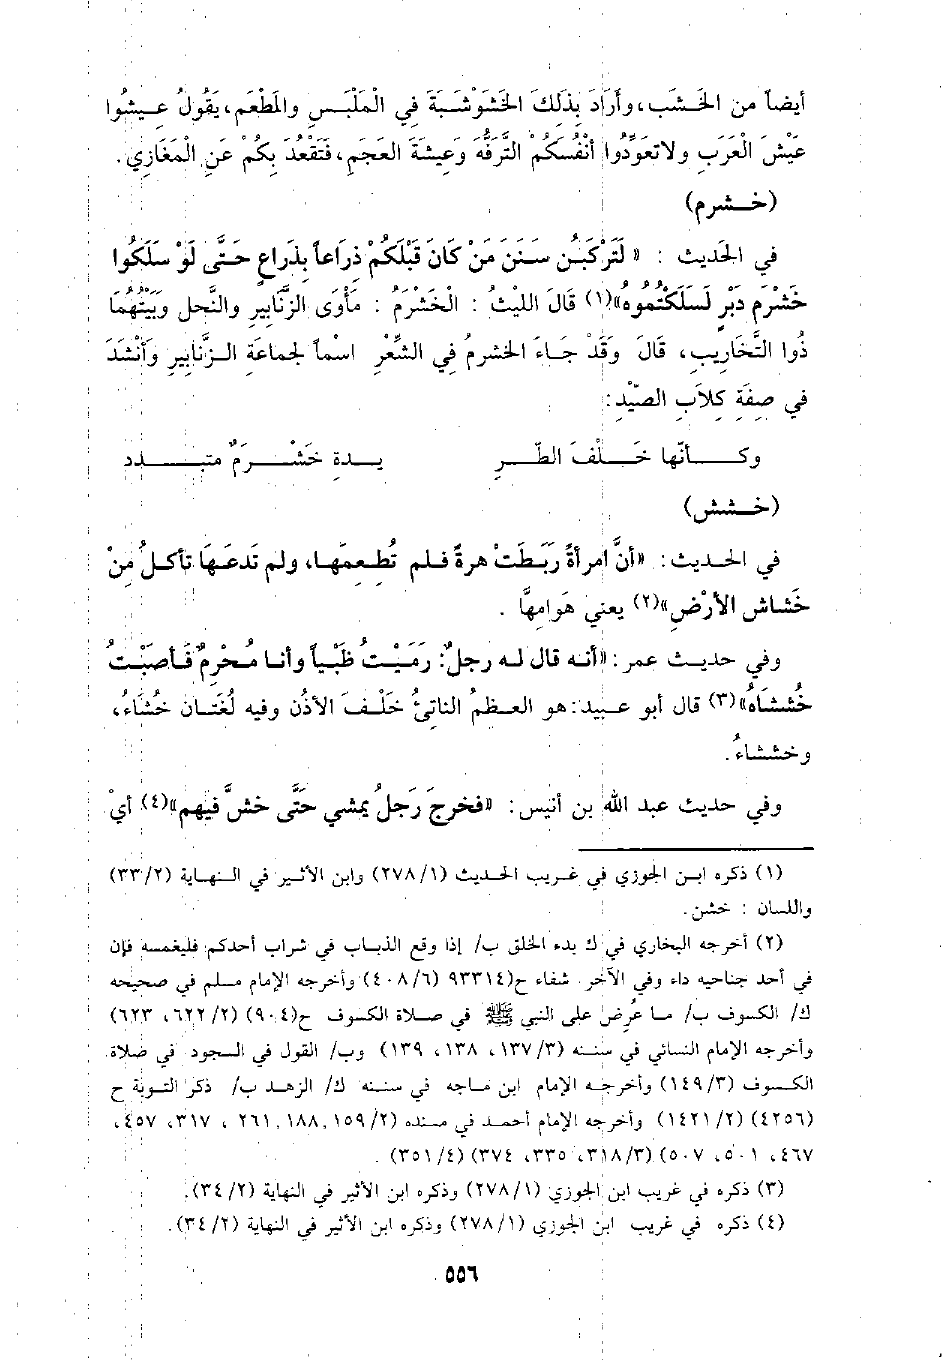 أيضاً من الخَشَب، وأَرَادَ بِذَلِكَ الخَشَوْشَبَةَ فِي الْمَلْبَسِ والمَطْعَمِ، يَقُولُ عِيشُوا
عَيْشَ الْعَرَبِ ولاتعَوِّدُوا أنْفُسَكُمْ التَّرَفُّهَ وَعِيشَةَ العَجَمِ، فَتَقْعُدَ بِكُمْ عَنِ الْمَغَازِي.
(خشرم)
في الحَدِيث : «لَتَرْكَبُنَ سَنَنَ مَنْ كَانَ قَبْلَكُمْ ذِرَاعاً بِذِرَاعٍ حَتَّى لَوْ سَلَكُوا
خَشْرَمَ دَبْرٍ لَسَلَكْتُمُوهُ»(١) قَالَ اللَّيْثُ : الْخَشْرَمُ : مَأْوَى الزَّنَابِيرِ والنَّحلِ وَبَيْتُهُمَا
ذُوا النَّخَارِيبِ، قَالَ وَقَدْ جَاءَ الخشرمُ فِي الشِّعْرِ اسْماً لجماعَةِ الزَّنابيرِ وَأَنْشَدَ
في صِفَةِ كِلاَبِ الصَّيْدِ:
وكأنّها خَلْفَ الطّرِ يدةِ خَشْرَمٌ متبدد
(خشش)
في الحديث: «أنَّ امرأةً رَبَطَتْ هرةً فلم تُطعِمهَا، ولم تَدعَهَا تأكلُ مِنْ
خَشَاش الأرْض»(٢) يعني هَوامِهَّا .
وفي حديث عمر: «أنه قال له رجلٌ: رَمَيْتُ ظَبْياً وأنا مُحْرِمٌ فَأصَبْتُ
خُشَشَاهُ»(٣) قال أبو عبيد: هو العظمُ الناتئُ خَلْفَ الأذُن وفيه لُغَتَان خُشَاءُ،
وخششاءُ.
وفي حديث عبد الله بن أنيس: «فخرجَ رَجلٌ يمشي حَتَّى خشَّ فيهم»(٤) أيْ
(١) ذكره ابن الجوزي في غريب الحديث (٢٧٨/١) وابن الأثير في النهاية (٣٣/٢)
واللسان : خشن.
(٢) أخرجه البخاري في ك بدء الخلق ب/ إذا وقع الذباب في شراب أحدكم فليغمسه فإن
في أحد جناحيه داء وفي الآخر شفاء ح(٩٣٣١٤ (٤٠٨/٦) وأخرجه الإمام مسلم في صحيحه
ك/ الكسوف ب/ ما عُرض على النبي ﷺ في صلاة الكسوف ح(٩٠٤) (٦٢٢/٢، ٦٢٣)
وأخرجه الإمام النسائي في سننه (١٣٧/٣، ١٣٨، ١٣٩) وب/ القول في السجود في صلاة
الكسوف (١٤٩/٣) وأخرجه الإمام ابن ماجه في سننه ك/ الزهد ب/ ذكر التوبة ح
(٤٢٥٦) (١٤٢١/٢) وأخرجه الإمام أحمد في مسنده (١٥٩/٢, ١٨٨, ٢٦١ ، ٣١٧، ٤٥٧،
٤٦٧، ٥٠١، ٥٠٧) (٣١٨/٣، ٣٣٥، ٣٧٤) (٣٥١/٤) .
(٣) ذكره في غريب ابن الجوزي (٢٧٨/١) وذكره ابن الأثير في النهاية (٣٤/٢).
(٤) ذكره في غريب ابن الجوزي (٢٧٨/١) وذكره ابن الأثير في النهاية (٣٤/٢).
٥٥٦